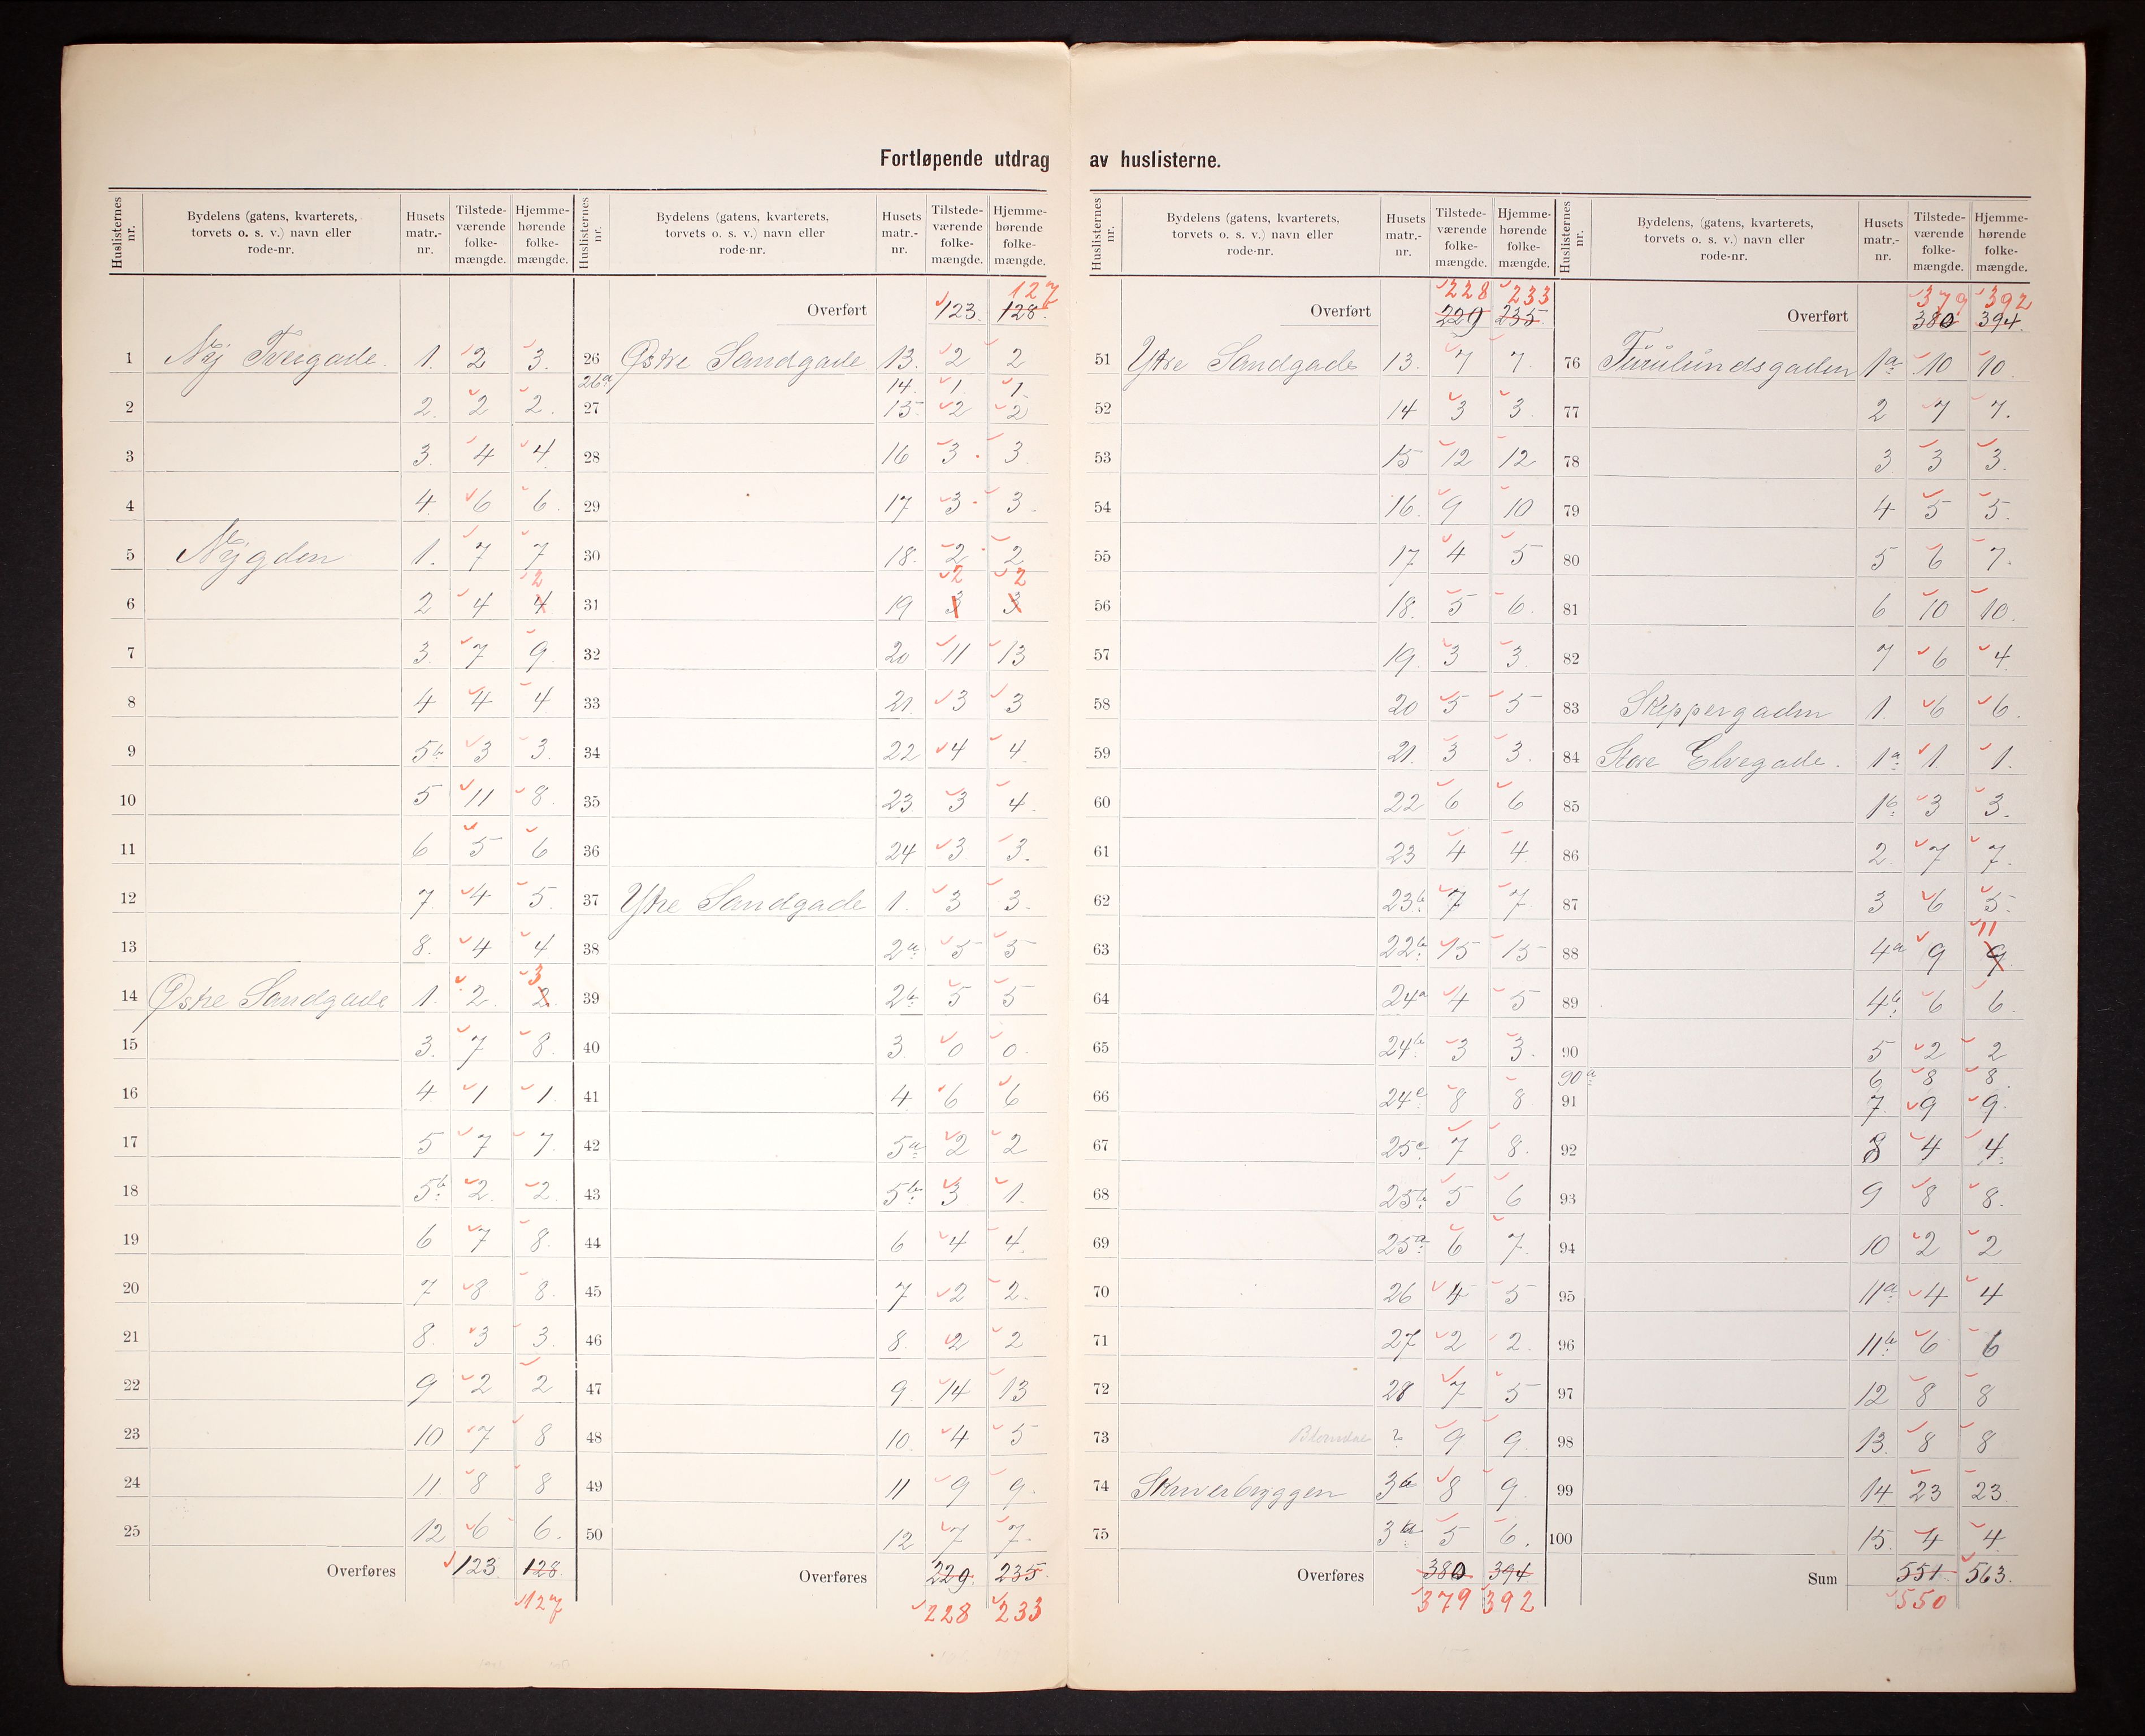 Fortløpende utdrag av huslisterne.
Huslisternes nr. | Bydelens (gatens, kvarterets, torvets o. s. v.) navn eller rode-nr. | Husets matr.-nr. | Tilstedeværende folkemængde. | Hjemmehørende folkemængde.
1 Nÿ Tveigade. 1. 2 3.
2 2. 2 2.
3 3. 4 4
4 4. 6 6.
5 Nÿgden 1. 7 7
6 2 4 4 2
7 3. 7 9.
8 4 4 4
9 5b 3 3.
10 5 11 8.
11 6 5 6
12 7. 4 5.
13 8. 4 4
14 Østre Sandgade 1. 2. 2. 3
15 3. 7 8.
16 4. 1 1.
17 5 7 7.
18 5b 2. 2.
19 6 7 8.
20 7 8 8.
21 8. 3 3.
22 9 2 2
23 10 7 8
24 11. 8 8
25 12 6 6.
Overføres 123. 128. 127
Huslisternes nr. | Bydelens (gatens, kvarterets, torvets o. s. v.) navn eller rode-nr. | Husets matr.-nr. | Tilstedeværende folkemængde. | Hjemmehørende folkemængde.
Overført 123. 128. 127
26 Østre Sandgade 13. 2 2
26a 14. 1. 1
27 15 2 2
28 16 3 3.
29 17 3 3.
30 18. 2 2
31 19 3 2 3 2
32 20 11 13
33 21. 3 3
34 22 4 4.
35 23. 3 4.
36 24 3 3.
37 Ytre Sandgade 1. 3 3.
38 2a 5 5
39 2b 5 5
40 3. 0 0.
41 4 6 6
42 5a 2 2
43 5b 3 1.
44 6 4 4.
45 7 2 2.
46 8. 2 2
47 9. 14 13
48 10. 4 5
49 11 9 9.
50 12 7 7.
Overføres 229. 235. 228 233
Huslisternes nr. | Bydelens (gatens, kvarterets, torvets o. s. v.) navn eller rode-nr. | Husets matr.-nr. | Tilstedeværende folkemængde. | Hjemmehørende folkemængde.
Overført 229 235. 228 233
51 Ytre Sandgade 13. 7 7.
52 14 3 3.
53 15 12 12
54 16. 9 10
55 17 4 5
56 18. 5 6.
57 19. 3 3.
58 20 5 5
59 21. 3 3.
60 22 6 6
61 23 4 4.
62 23b 7 7.
63 22b 15 15
64 24a 4 5
65 24b 3 3.
66 24c 8 8
67 25c 7 8.
68 25b 5 6
69 25a 6 7.
70 26 4 5
71 27 2 2.
72 28 7 5
73 ? 9 9.
74 Skriverbryggen 3b 8 9.
75 3a 5 6.
Overføres 380 394 379 392
Huslisternes nr. | Bydelens, (gatens, kvarterets, torvets o. s. v.) navn eller rode-nr. | Husets matr.-nr. | Tilstedeværende folkemængde. | Hjemmehørende folkemængde.
Overført 380 394. 379 392
76 Furulundsgaden 1a 10 10.
77 2 7 7.
78 3 3 3.
79 4 5 5.
80 5 6 7.
81 6 10 10.
82 7 6 4.
83 Skippergaden 1. 6 6.
84 Store Elvegade. 1a 1. 1.
85 1b 3 3.
86 2. 7 7.
87 3 6 5.
88 4a 9 9. 11
89 4b 6 6.
90 5 2 2
90a 6 8 8.
91 7 9 9.
92 8 4 4.
93 9 8 8.
94 10 2 2
95 11a 4 4
96 11b 6 6
97 12 8 8
98 13. 8 8
99 14 23 23
100 15. 4 4.
Sum 551. 563. 550